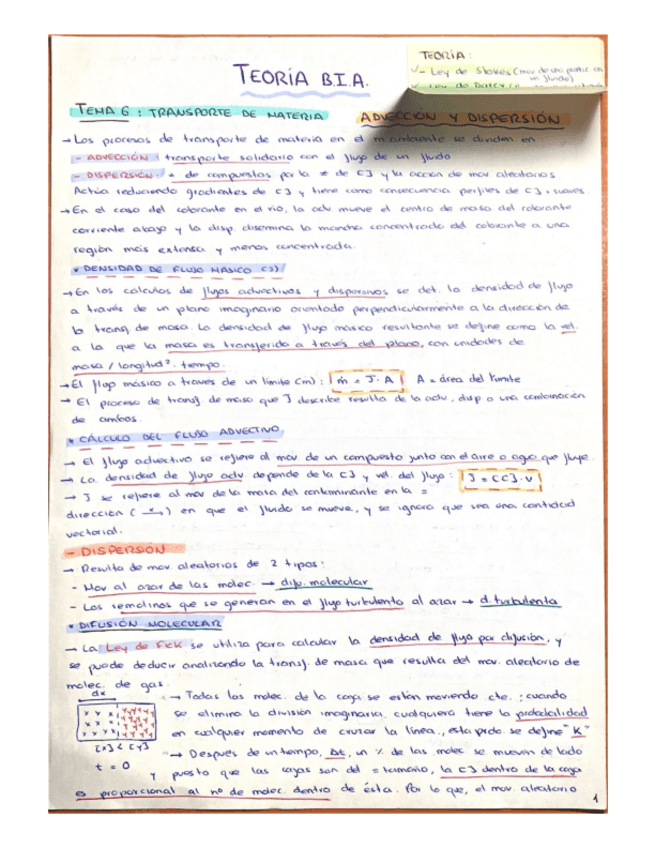 TEORÍA B.I.A.
TEORÍA:
✓- Ley de Stokes (mov de una partic en un fluido)
TEMA 6: TRANSPORTE DE MATERIA ADVECCIÓN Y DISPERSIÓN
→ Los procesos de transporte de materia en el m.ambiente se dividen en:
- ADVECCIÓN: transporte solidario con el flujo de un fluido
- DISPERSIÓN: " de compuestos por la ≠ de [] y la acción de mov aleatorios
Actúa reduciendo gradientes de [] y tiene como consecuencia perfiles de [] + suaves.
→ En el caso del colorante en el río, la adv. mueve el centro de masa del colorante
corriente abajo y la disp. disemina la mancha concentrada del colorante a una
región más extensa y menos concentrada.
* DENSIDAD DE FLUJO MÁSICO (J)
→ En los cálculos de flujos advectivos y dispersivos se det. la densidad de flujo
a través de un plano imaginario orientado perpendicularmente a la dirección de
la transf. de masa. La densidad de flujo másico resultante se define como la vel.
a la que la masa es transferida a través del plano, con unidades de
masa / longitud². tiempo.
→ El flujo másico a través de un límite (m): ṁ = J · A A = área del límite
→ El proceso de transf. de masa que J describe resulta de la adv, disp o una combinación
de ambos.
* CÁLCULO DEL FLUJO ADVECTIVO
→ El flujo advectivo se refiere al mov de un compuesto junto con el aire o agua que fluye.
→ La densidad de flujo adv. depende de la [] y vel. del flujo: J = [C] · v
→ J se refiere al mov de la masa del contaminante en la =
dirección (x→) en que el fluido se mueve, y se ignora que sea una cantidad
vectorial.
- DISPERSIÓN
→ Resulta de mov aleatorios de 2 tipos:
- Mov al azar de las moléc. → difu. molecular
- Los remolinos que se generan en el flujo turbulento al azar → d. turbulenta
* DIFUSIÓN MOLECULAR
→ La Ley de Fick se utiliza para calcular la densidad de flujo por difusión, y
se puede deducir analizando la transf. de masa que resulta del mov. aleatorio de
moléc. de gas.
dx
→ Todas las moléc. de la caja se están moviendo cte.; cuando
se elimina la división imaginaria, cualquiera tiene la probabilidad
en cualquier momento de cruzar la línea, esta prob. se define "K"
[x] < [Y]
t = 0
→ Después de un tiempo, Δt, un % de las moléc se mueven de lado
y puesto que las cajas son del = tamaño, la [] dentro de la caja
es proporcional al nº de moléc. dentro de ésta. Por lo que, el mov. aleatorio
1